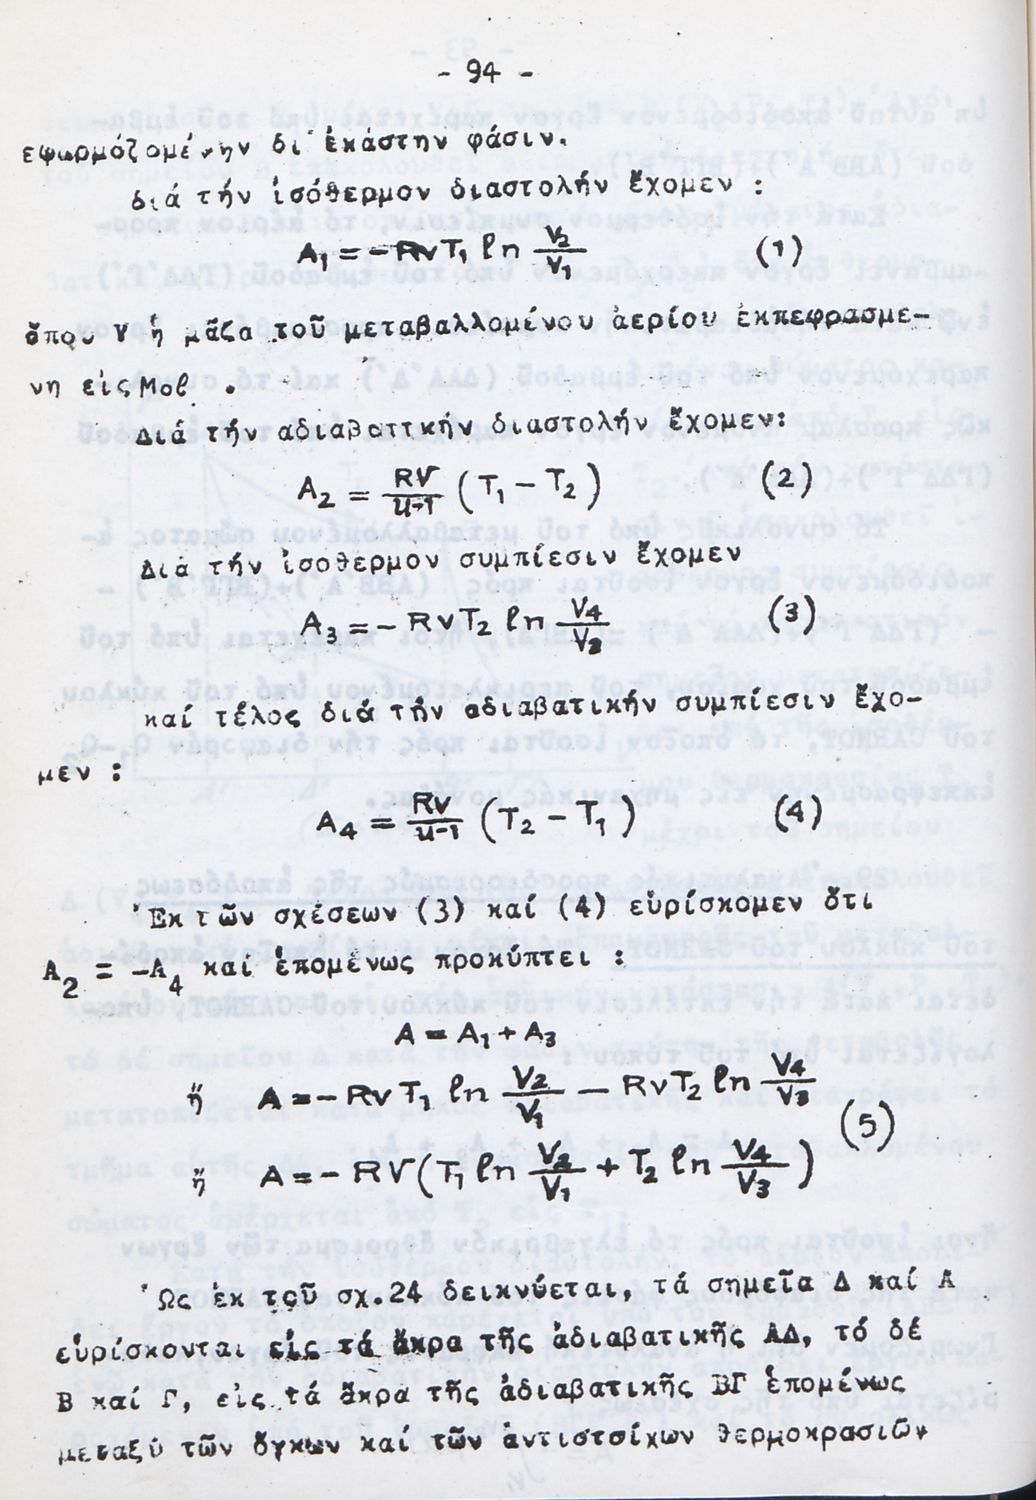 - 94 -
εφωρμόζομένην δι᾽ ἑκάστην φάσιν.
διά τήν ἰσόθερμον διαστολήν ἔχομεν :
A₁ = - RνT₁ ln V₂/V₁ (1)
ὅπου ν ἡ μᾶζα τοῦ μεταβαλλομένου ἀερίου ἐκπεφρασμε-
νη εἰς Mol .
Διά τήν αδιαβαττκήν διαστολήν ἔχομεν:
A₂ = Rν/μ-1 (T₁ - T₂) (2)
Διά τήν ἰσοθερμον συμπίεσιν ἔχομεν
A₃ = - RνT₂ ln V₄/V₃ (3)
καί τέλος διά τήν αδιαβατικήν συμπίεσιν ἔχο-
μεν :
A₄ = Rν/μ-1 (T₂ - T₁) (4)
Ἐκ τῶν σχέσεων (3) καί (4) εὑρίσκομεν ὅτι
A₂ = -A₄ καί ἑπομένως προκύπτει :
A = A₁ + A₃
ἤ A = - RνT₁ ln V₂/V₁ - RνT₂ ln V₄/V₃
ἤ A = - Rν(T₁ ln V₂/V₁ + T₂ ln V₄/V₃) (5)
Ὡς ἐκ τοῦ σχ.24 δεικνύεται, τά σημεῖα Δ καί Α
εὑρίσκονται εἰς τά ἄκρα τῆς ἀδιαβατικῆς ΑΔ, τό δέ
Β καί Γ, εἰς τά ἄκρα τῆς ἀδιαβατικῆς ΒΓ ἑπομένως
μεταξύ τῶν ὄγκων καί τῶν ἀντιστοίχων θερμοκρασιῶν